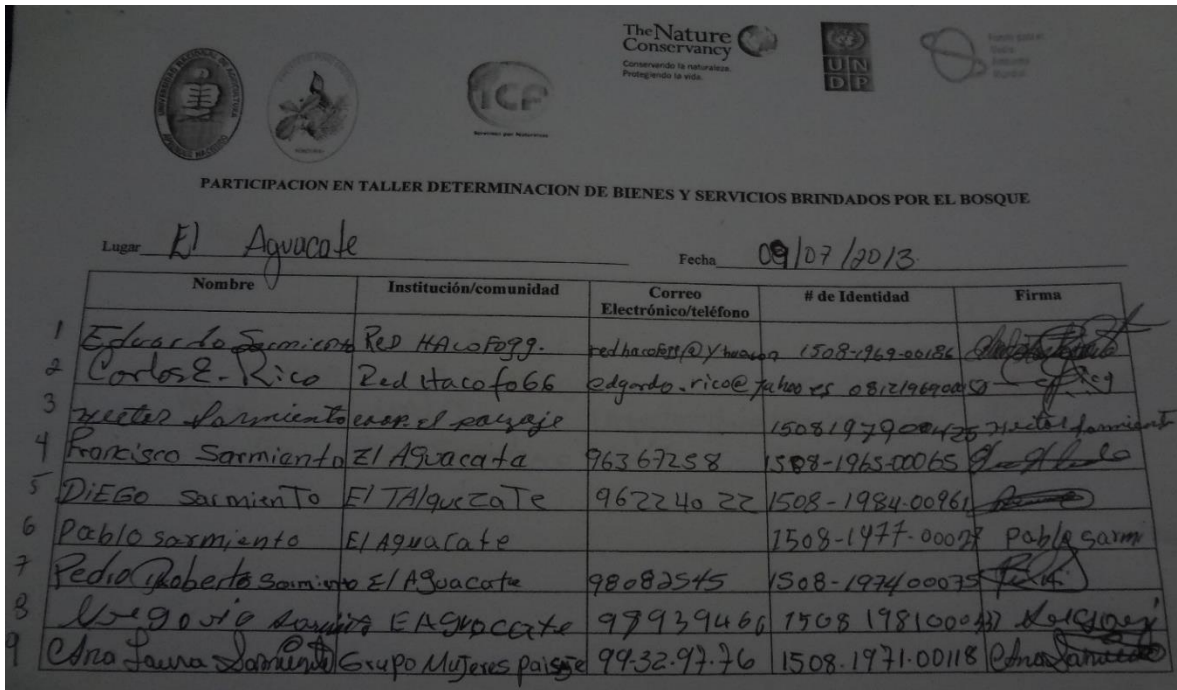 The Nature
Conservancy
Conservando la naturaleza.
Protegiendo la vida.
UN
DP
ICF
PARTICIPACION EN TALLER DETERMINACION DE BIENES Y SERVICIOS BRINDADOS POR EL BOSQUE
Lugar El Aguacate Fecha 09/07/2013
Nombre Institución/comunidad Correo Electrónico/teléfono # de Identidad Firma
1 Eduardo Sarmiento Red HACOFOgg. 1508-1969-00186
2 Carlos E. Rico Red Hacofo66 edgardo.rico@yahoo.es
3 Hector Sarmiento coop. el paizaje Hector Sarmiento
4 Francisco Sarmiento El Aguacata 96367258 1508-1965-00065
5 DiEGO sarmienTo El TAlquezaTe 96224022 1508-1984-00961
6 Pablo sarmiento El Aguacate Pablo sarmi
7 Pedro Roberto Sarmiento El Aguacate 98082545 1508-1974 00075
8 El Aguacate
9 Ana Laura Sarmiento Grupo Mujeres paisaje 99-32-97-76 1508-1971-00118